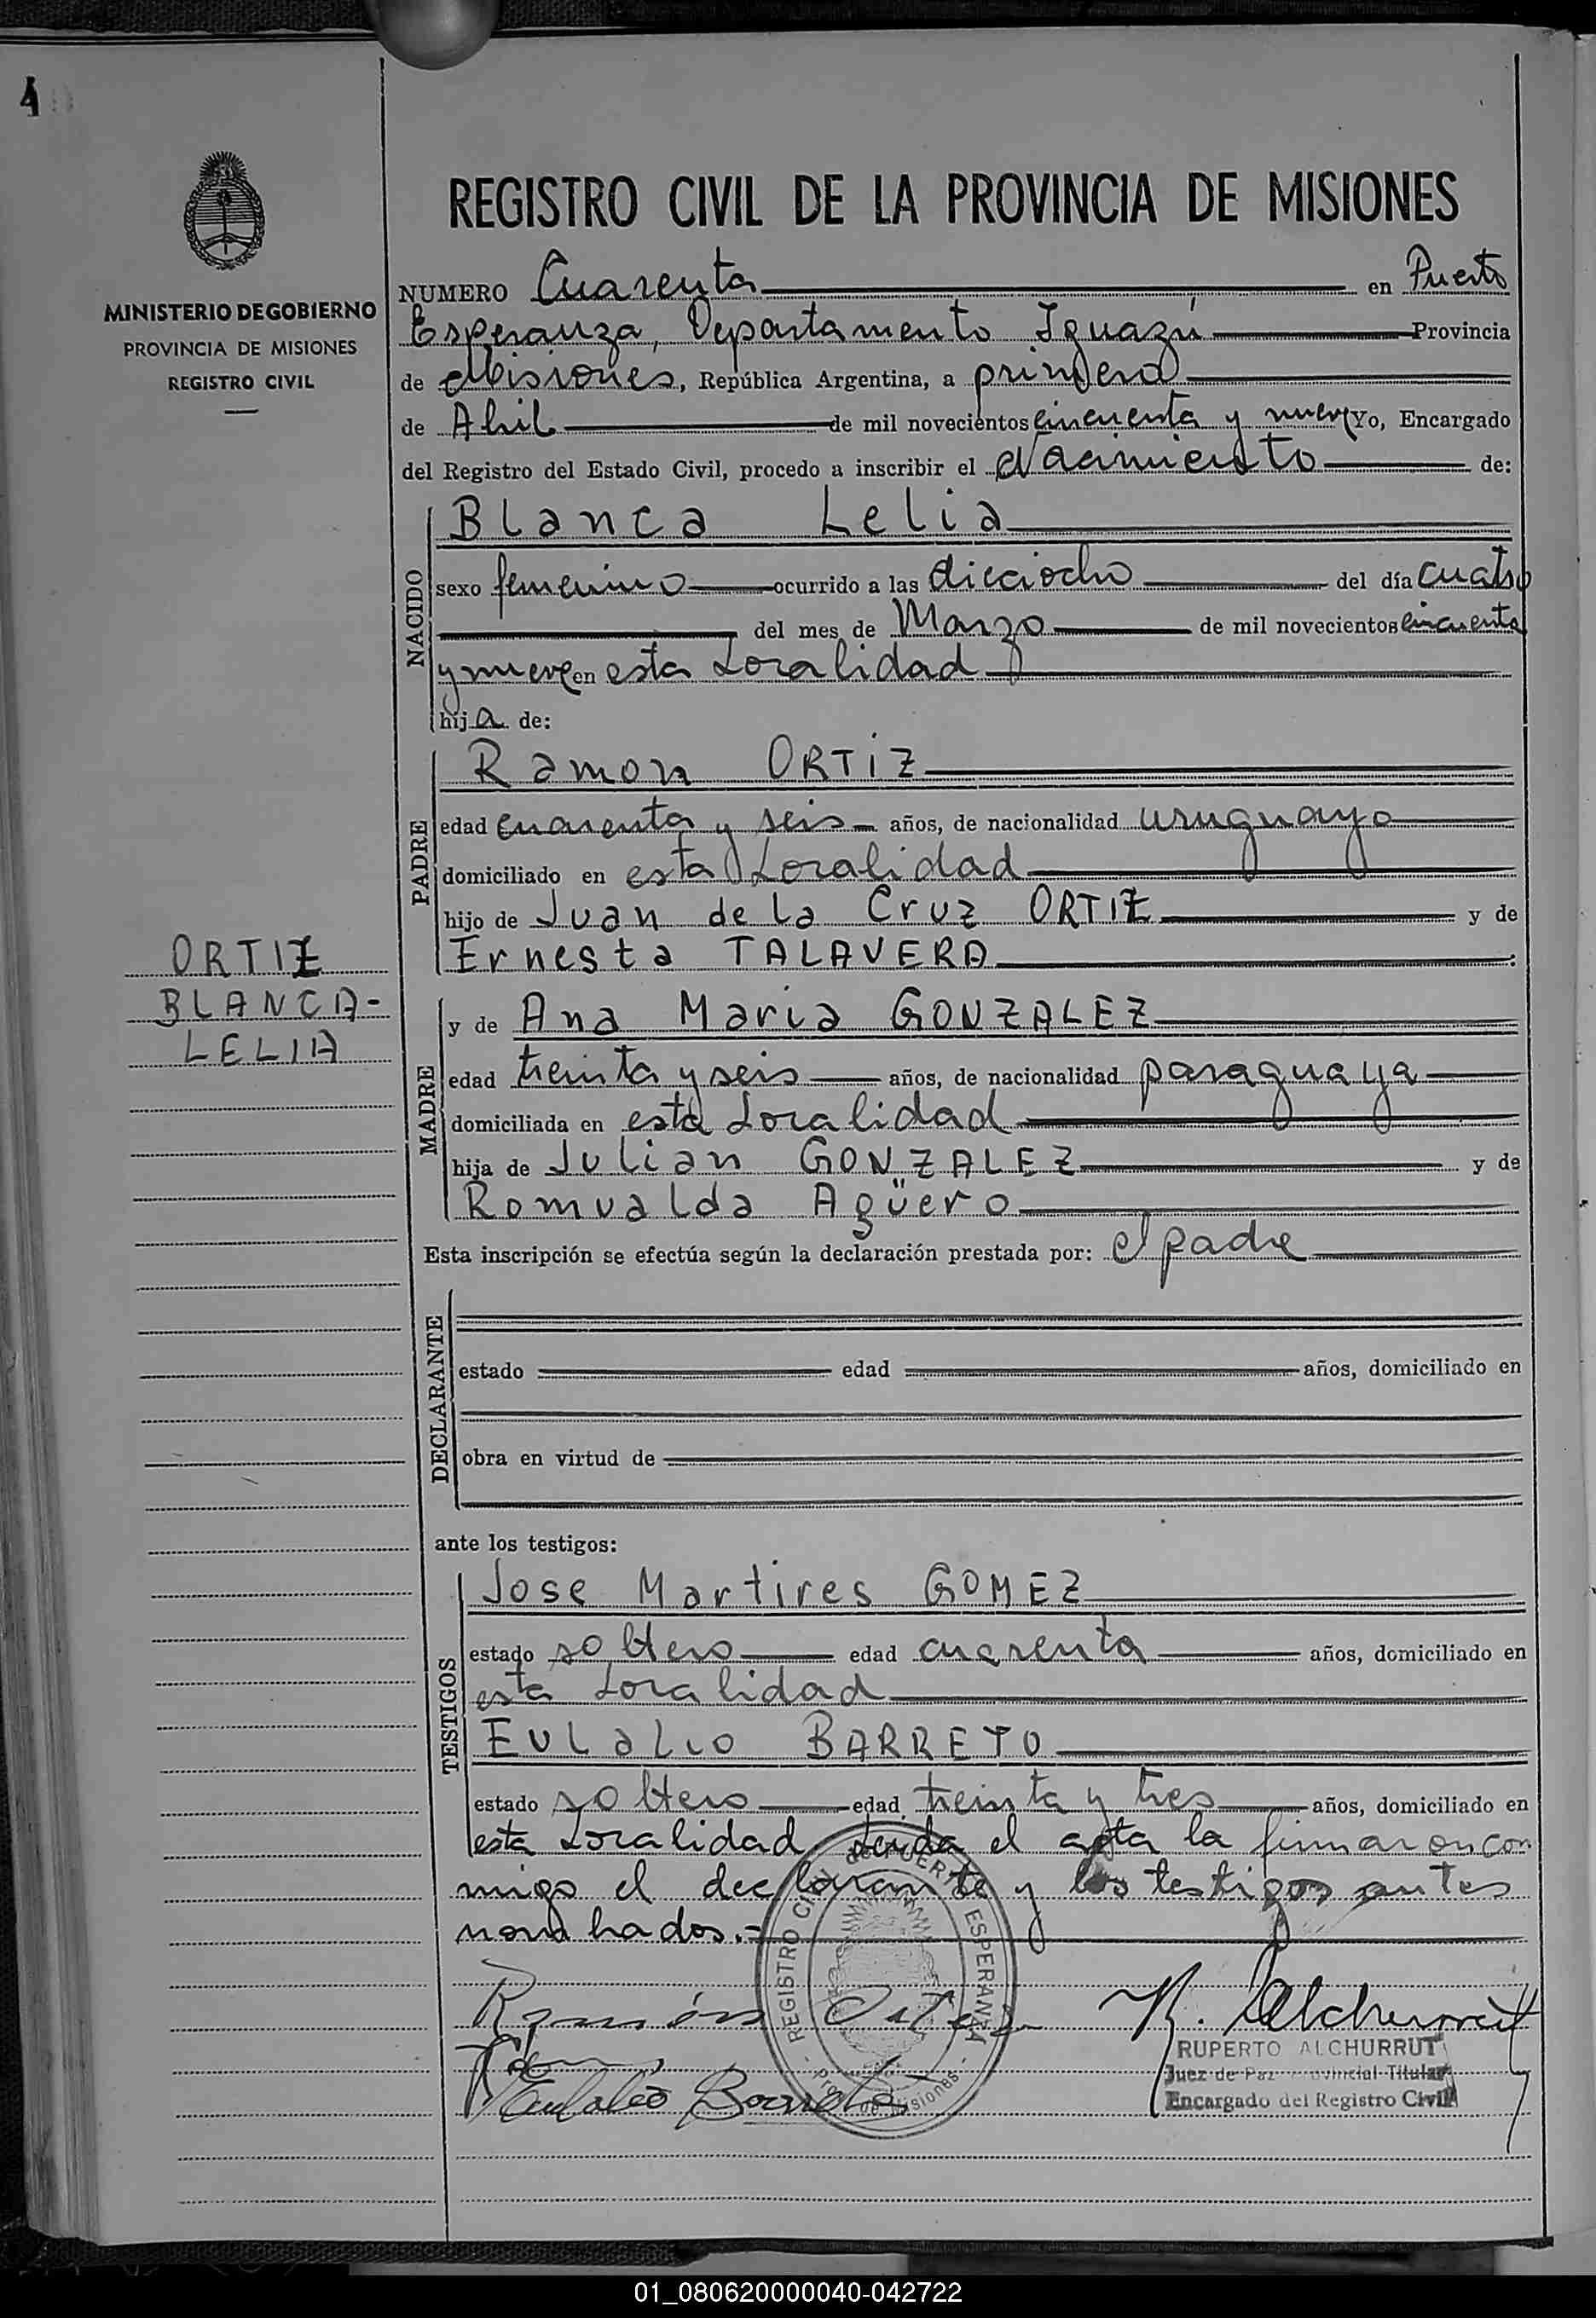 4
MINISTERIO DE GOBIERNO
PROVINCIA DE MISIONES
REGISTRO CIVIL
REGISTRO CIVIL DE LA PROVINCIA DE MISIONES
NUMERO Cuarenta en Puerto
Esperanza, Departamento Iguazú Provincia
de Misiones, República Argentina, a primero
de Abril de mil novecientos cincuenta y nueve Yo, Encargado
del Registro del Estado Civil, procedo a inscribir el Nacimiento de:
NACIDO
Blanca Lelia
sexo femenino ocurrido a las dieciocho del día cuatro
del mes de Marzo de mil novecientos cincuenta
y nueve en esta Localidad
hija de:
PADRE
Ramon ORTIZ
edad cuarenta y seis años, de nacionalidad uruguayo
domiciliado en esta Localidad
hijo de Juan de la Cruz ORTIZ y de
Ernesta TALAVERA
ORTIZ
BLANCA-
LELIA
MADRE
y de Ana Maria GONZALEZ
edad treinta y seis años, de nacionalidad paraguaya
domiciliada en esta Localidad
hija de Julian GONZALEZ y de
Romualda Agüero
Esta inscripción se efectúa según la declaración prestada por: el padre
DECLARANTE
estado edad años, domiciliado en
obra en virtud de
ante los testigos:
TESTIGOS
Jose Martires GOMEZ
estado soltero edad cuarenta años, domiciliado en
esta Localidad
Eulalio BARRETO
estado soltero edad treinta y tres años, domiciliado en
esta Localidad Leida el acta la firmaron con
migo el declarante y los testigos antes
nombrados.-
REGISTRO CIVIL de PUERTO ESPERANZA
Prov. de Misiones
Ramón Ortiz
R. Alchurrut
RUPERTO ALCHURRUT
Juez de Paz Provincial Titular
Encargado del Registro Civil
Eulalio Barreto
01_080620000040-042722